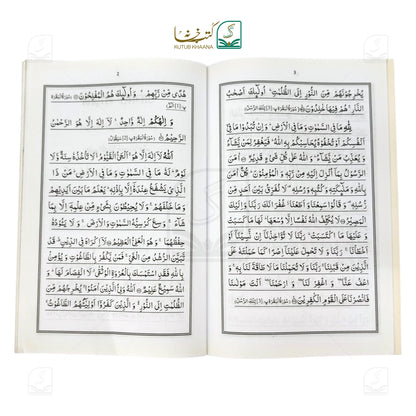 كتب خانہ
KUTUB KHAANA
2
هُدًى مِّنْ رَّبِّهِمْ ۙ وَ اُولٰٓئِكَ هُمُ الْمُفْلِحُوْنَ
وَ اِلٰهُكُمْ اِلٰهٌ وَّاحِدٌ ۚ لَاۤ اِلٰهَ اِلَّا هُوَ الرَّحْمٰنُ
الرَّحِيْمُ
اَللّٰهُ لَاۤ اِلٰهَ اِلَّا هُوَ ۚ اَلْحَیُّ الْقَیُّوْمُ ۚ لَا تَاْخُذُهٗ سِنَةٌ وَّلَا
نَوْمٌ ؕ لَهٗ مَا فِی السَّمٰوٰتِ وَمَا فِی الْاَرْضِ ؕ مَنْ ذَا
الَّذِیْ یَشْفَعُ عِنْدَهٗۤ اِلَّا بِاِذْنِهٖ ؕ یَعْلَمُ مَا بَیْنَ اَیْدِیْهِمْ
وَ مَا خَلْفَهُمْ ۚ وَلَا یُحِیْطُوْنَ بِشَیْءٍ مِّنْ عِلْمِهٖۤ اِلَّا بِمَا
شَآءَ ۚ وَسِعَ كُرْسِیُّهُ السَّمٰوٰتِ وَالْاَرْضَ ۚ وَ لَا یَـُٔوْدُهٗ
حِفْظُهُمَا ۚ وَ هُوَ الْعَلِیُّ الْعَظِیْمُ لَاۤ اِكْرَاهَ فِی الدِّیْنِ ۙ قَدْ
تَّبَیَّنَ الرُّشْدُ مِنَ الْغَیِّ ۚ فَمَنْ یَّكْفُرْ بِالطَّاغُوْتِ وَ یُؤْمِنْ
بِاللّٰهِ فَقَدِ اسْتَمْسَكَ بِالْعُرْوَةِ الْوُثْقٰی ۗ لَا انْفِصَامَ لَهَا ؕ وَ
اللّٰهُ سَمِیْعٌ عَلِیْمٌ اَللّٰهُ وَلِیُّ الَّذِیْنَ اٰمَنُوْا ۙ یُخْرِجُهُمْ مِّنَ
الظُّلُمٰتِ اِلَی النُّوْرِ ؕ وَ الَّذِیْنَ كَفَرُوْۤا اَوْلِیٰٓـُٔهُمُ الطَّاغُوْتُ ۙ
3
یُخْرِجُوْنَهُمْ مِّنَ النُّوْرِ اِلَی الظُّلُمٰتِ ؕ اُولٰٓئِكَ اَصْحٰبُ
النَّارِ ۚ هُمْ فِیْهَا خٰلِدُوْنَ
لِلّٰهِ مَا فِی السَّمٰوٰتِ وَمَا فِی الْاَرْضِ ؕ وَ اِنْ تُبْدُوْا مَا فِیْۤ
اَنْفُسِكُمْ اَوْ تُخْفُوْهُ یُحَاسِبْكُمْ بِهِ اللّٰهُ ؕ فَیَغْفِرُ لِمَنْ یَّشَآءُ
وَ یُعَذِّبُ مَنْ یَّشَآءُ ؕ وَ اللّٰهُ عَلٰی كُلِّ شَیْءٍ قَدِیْرٌ اٰمَنَ
الرَّسُوْلُ بِمَاۤ اُنْزِلَ اِلَیْهِ مِنْ رَّبِّهٖ وَ الْمُؤْمِنُوْنَ ؕ كُلٌّ اٰمَنَ
بِاللّٰهِ وَ مَلٰٓئِكَتِهٖ وَ كُتُبِهٖ وَ رُسُلِهٖ ۟ لَا نُفَرِّقُ بَیْنَ اَحَدٍ مِّنْ
رُّسُلِهٖ ۟ وَ قَالُوْا سَمِعْنَا وَ اَطَعْنَا ٭ۗ غُفْرَانَكَ رَبَّنَا وَ اِلَیْكَ
الْمَصِیْرُ لَا یُكَلِّفُ اللّٰهُ نَفْسًا اِلَّا وُسْعَهَا ؕ لَهَا مَا كَسَبَتْ
وَ عَلَیْهَا مَا اكْتَسَبَتْ ؕ رَبَّنَا لَا تُؤَاخِذْنَاۤ اِنْ نَّسِیْنَاۤ اَوْ
اَخْطَاْنَا ۚ رَبَّنَا وَ لَا تَحْمِلْ عَلَیْنَاۤ اِصْرًا كَمَا حَمَلْتَهٗ عَلَی
الَّذِیْنَ مِنْ قَبْلِنَا ۚ رَبَّنَا وَ لَا تُحَمِّلْنَا مَا لَا طَاقَةَ لَنَا بِهٖ ۚ وَ
اعْفُ عَنَّا ۥ وَ اغْفِرْ لَنَا ۥ وَ ارْحَمْنَا ۥ اَنْتَ مَوْلٰىنَا
فَانْصُرْنَا عَلَی الْقَوْمِ الْكٰفِرِیْنَ